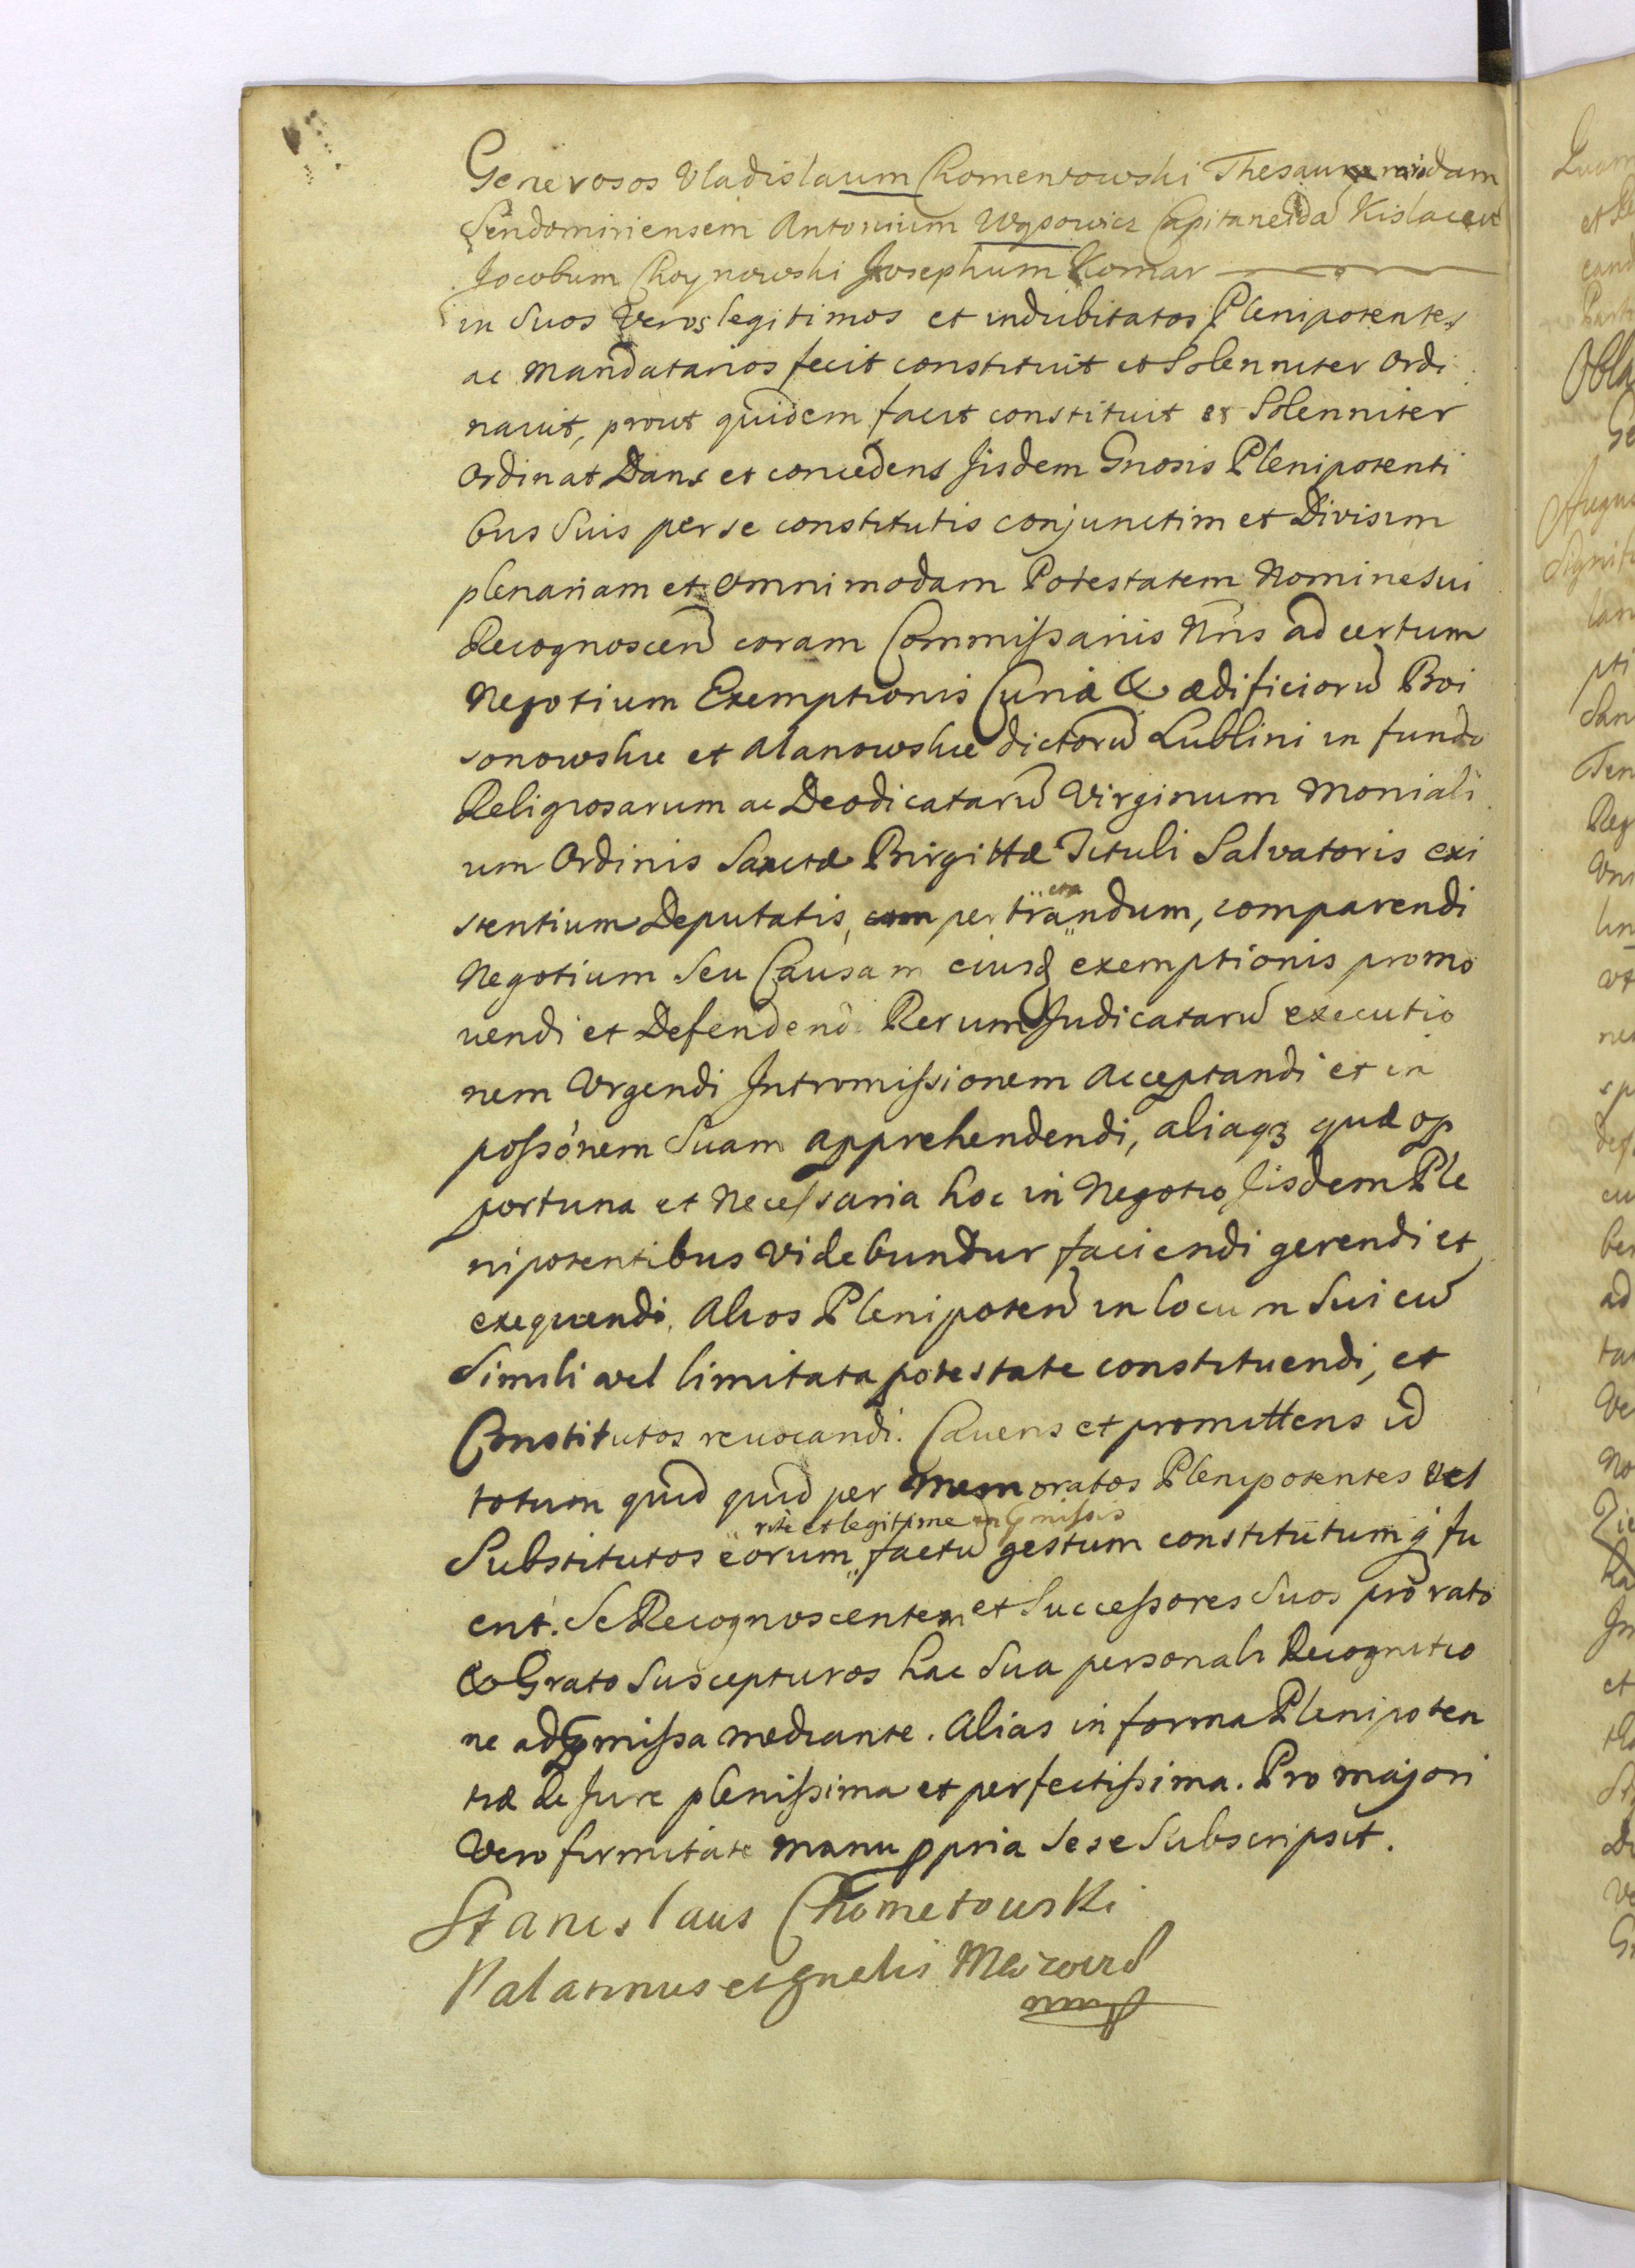 Generosos Vladislaum Chomentowski Thesaurariidam
Sendomiriensem Antonium Wysowicz Capitaneida
Jocobum Choynowski Josephum Komar
in Suos Veros legitimos et indubitatos Plenipotentes
ac Mandatarios fecit constituit et Solenniter Ordi
navit, prout quidem facit constituit et Solenniter
Ordinat Dans et concedens Jisdem Gnosis Plenipotenti
bus Suis per se constitutis conjunctim et Divisim
plenariam et Omnimodam Potestatem Nomine Sui
Recognoscen̄ coram Commissariis Nr̄is ad certum
Negotium Exemptionis Curiæ & ædificiorū Boi
sonowskie et Manowskie dictorū Lublini in fundo
Religiosarum ac Deodicatarū Virginum Moniali
um Ordinis Sanctæ Birgittæ Tituli Salvatoris exi
stentium Deputatis, pertractandum, comparendi
Negotium Seu Causam eiusd exemptionis promo
uendi et Defendendi Rerum Judicatarū executio
nem Urgendi Intromissionem Acceptandi et in
possōnem Suam apprehendendi, aliaq3 quæ op
portuna et Necessaria hoc in Negotio Jisdem Ple
nipotentibus Videbuntur faciendi gerendi et
exequendi, Alios Plenipoten̄ in locum Sui cū
Simili vel limitata potestate constituendi, et
Constitutos reuocandi. Cauens et promittens id
totum quid quid per Memoratos Plenipotentes Vel
rite et legitime in p̄missis
Substitutos eorum factū gestum constitutumq́ fu
erit. Se Recognoscentem et Successores Suos pro rato
& Grato Suscepturos hac Sua personali Recognitio
ne ad p̄missa mediante. Alias in forma Plenipoten
tiæ de Jure plenissima et perfectissima. Pro majori
Vero firmitate manu ppria Sese Subscripsit.
Stanislaus Chometowski
Palatinus et Gnelis Mazovi
mp